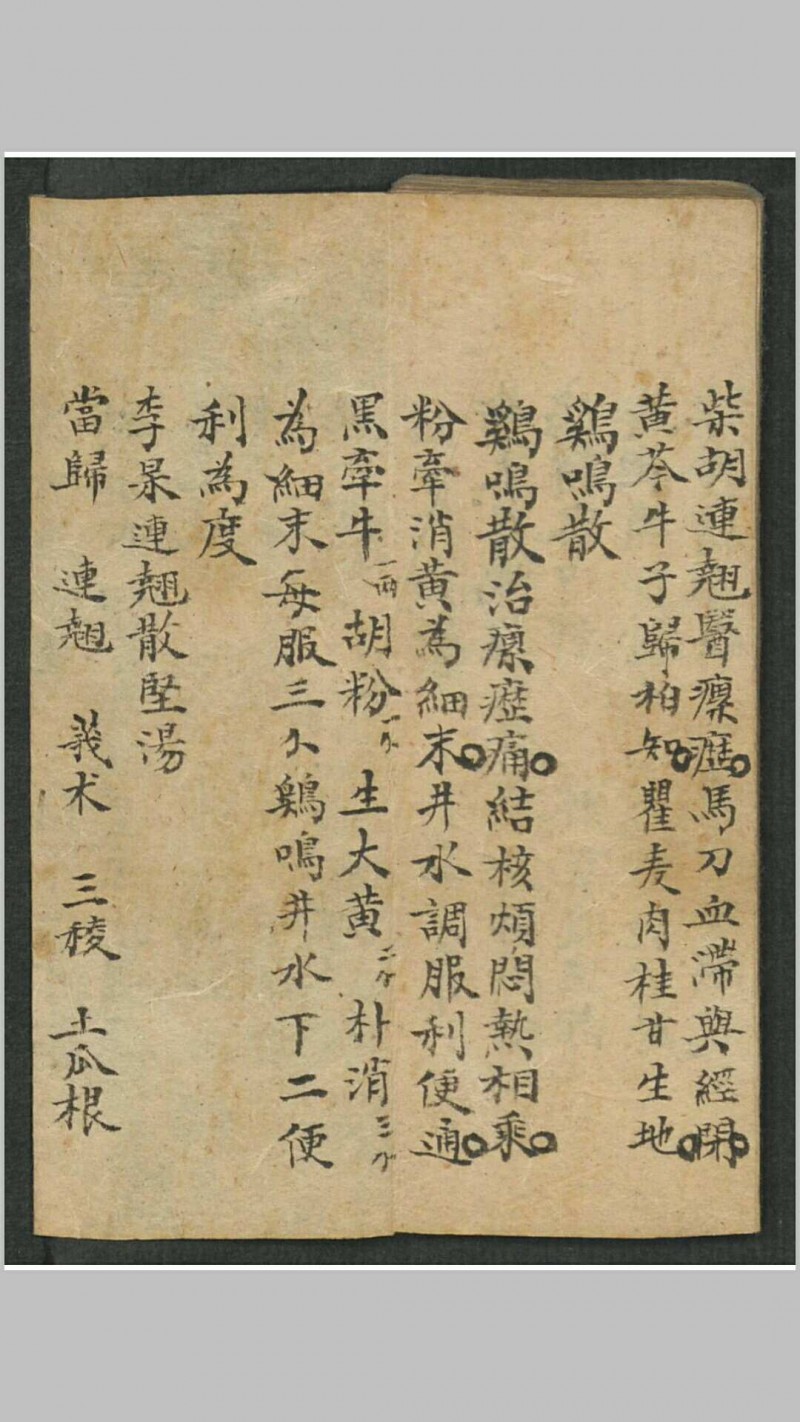 柴胡連翹醫瘰癧馬刀血滯與經閉
黃芩牛子歸柏知瞿麦肉桂甘生地
鷄鳴散
鷄鳴散治瘰癧痛結核煩悶熱相乘
粉牽消黃為細末井水調服利便通
黑牽牛一兩 胡粉一 生大黃二 朴消三
為細末每服三 鷄鳴井水下二便
利為度
李杲連翹散堅湯
當歸 連翹 莪术 三稜 土瓜根